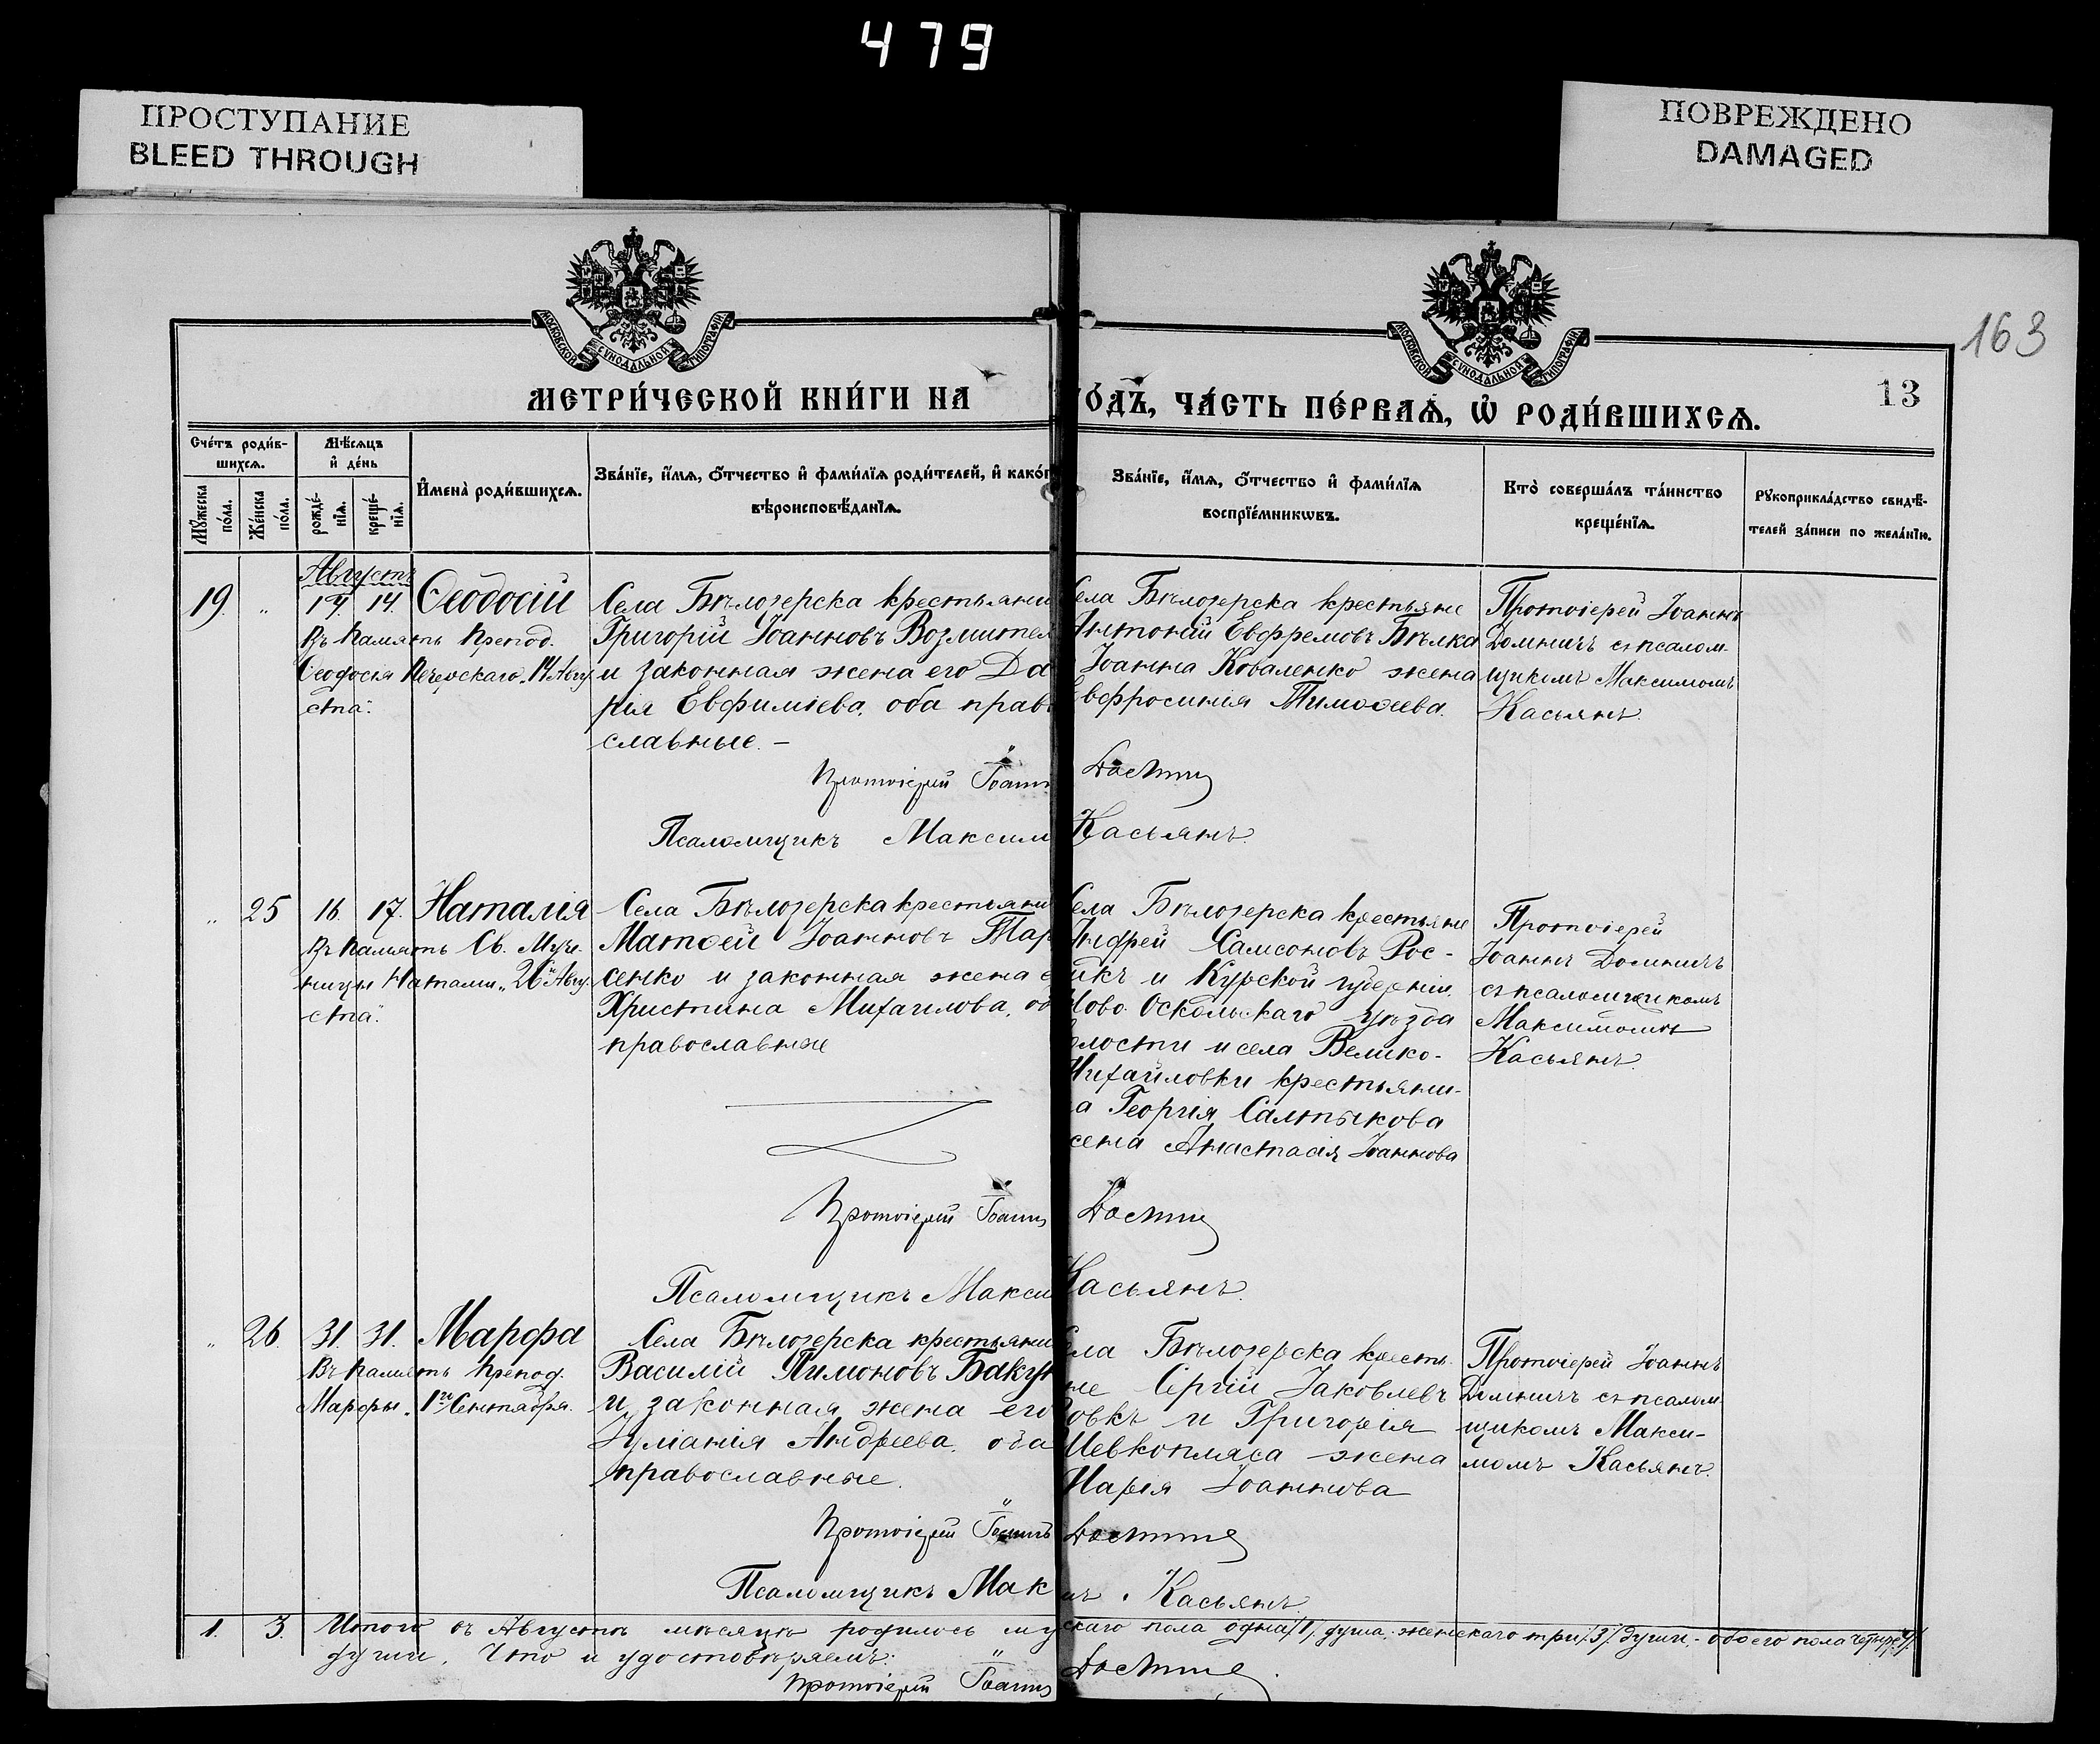 479
ПРОСТУПАНИЕ
BLEED THROUGH
ПОВРЕЖДЕНО
DAMAGED
МОСКОВСКОЙ СѴНОДАЛЬНОЙ ТИПОГРАФІИ
МОСКОВСКОЙ СѴНОДАЛЬНОЙ ТИПОГРАФІИ
163
13
МЕТРИ́ЧЕСКОЙ КНИ́ГИ НА
ГО́ДЪ, ЧА́СТЬ ПЕ́РВАѦ, Ѡ РОДИ́ВШИХСѦ.
Сче́тъ роди́в-
шихсѧ.
Мѣ́сѧцъ
и҆ де́нь
Мꙋ́жеска
по́ла.
Же́нска
по́ла.
рожде́-
нїѧ.
креще́-
нїѧ.
И҆мена̀ роди́вшихсѧ.
Зва́нїе, и҆́мѧ, ѻ҆́тчество и҆ фами́лїѧ роди́телей, и҆ како́г
вѣроисповѣ́данїѧ.
Зва́нїе, и҆́мѧ, ѻ҆́тчество и҆ фами́лїѧ
воспрїе́мникѡвъ.
Кто̀ соверша́лъ та́инство
креще́нїѧ.
Рꙋкоприкла́дство свидѣ́-
телей за́писи по жела́нїю.
Августъ
19. „ 14. 14. Ѳеодосій
Въ память препод.
Ѳеодосія Печерскаго „14 Авгу
ста“.
Села Бѣлозерска крестьяни
Григорій Іоанновъ Возмител
и законная жена его Да
рія Евфиміева, оба прав
славные. –
Села Бѣлозерска крестьяне
Антоній Евфремовъ Бѣлка
Іоанна Коваленко жена
Евфросинія Тимоѳеева.
Протоіерей Іоаннъ
Домничъ съ псалом-
щикомъ Максимомъ
Касьянъ.
Протоіерей Іоаннъ Домничъ
Псаломщикъ Максим Касьянъ.
„ 25 16. 17. Наталія
Въ память Св. Муче
ницы Наталіи „26 Авгу
ста“.
Села Бѣлозерска крестьяни
Матѳей Іоанновъ Тара
сенко и законная жена е
Христина Михаилова, об
православные
Села Бѣлозерска крестьяне
Андрей Самсоновъ Рос-
икъ и Курской губерніи,
Ново-Оскольскаго уѣзда
волости и села Велико-
Михайловки крестьяни-
на Георгія Салтыкова
жена Анастасія Іоаннова
Протоіерей
Іоаннъ Домничъ
съ псаломщикомъ
Максимомъ
Касьянъ.
Протоіерей Іоаннъ Домничъ
Псаломщикъ Макси Касьянъ.
„ 26. 31. 31. Марѳа
Въ память препод.
Марѳы „1го Сентября.
Села Бѣлозерска крестьяни
Василій Пимоновъ Бакун
и законная жена его
Іуліанія Андреева, оба
православные.
Села Бѣлозерска кресть
не Сергій Іаковлевъ
овкъ и Григорія
Шевкопляса жена
Марія Іоаннова
Протоіерей Іоаннъ
Домничъ съ псалом
щикомъ Макси-
момъ Касьянъ.
Протоіерей Іоаннъ Домничъ
Псаломщикъ Мак мъ Касьянъ.
1. 3. Итого въ Августѣ мѣсяцѣ родилось мужскаго пола одна /1/ душа, женскаго три /3/ души, – обоего пола четыре /4/
души. Что и удостовѣряемъ:
Протоіерей Іоаннъ Домничъ.